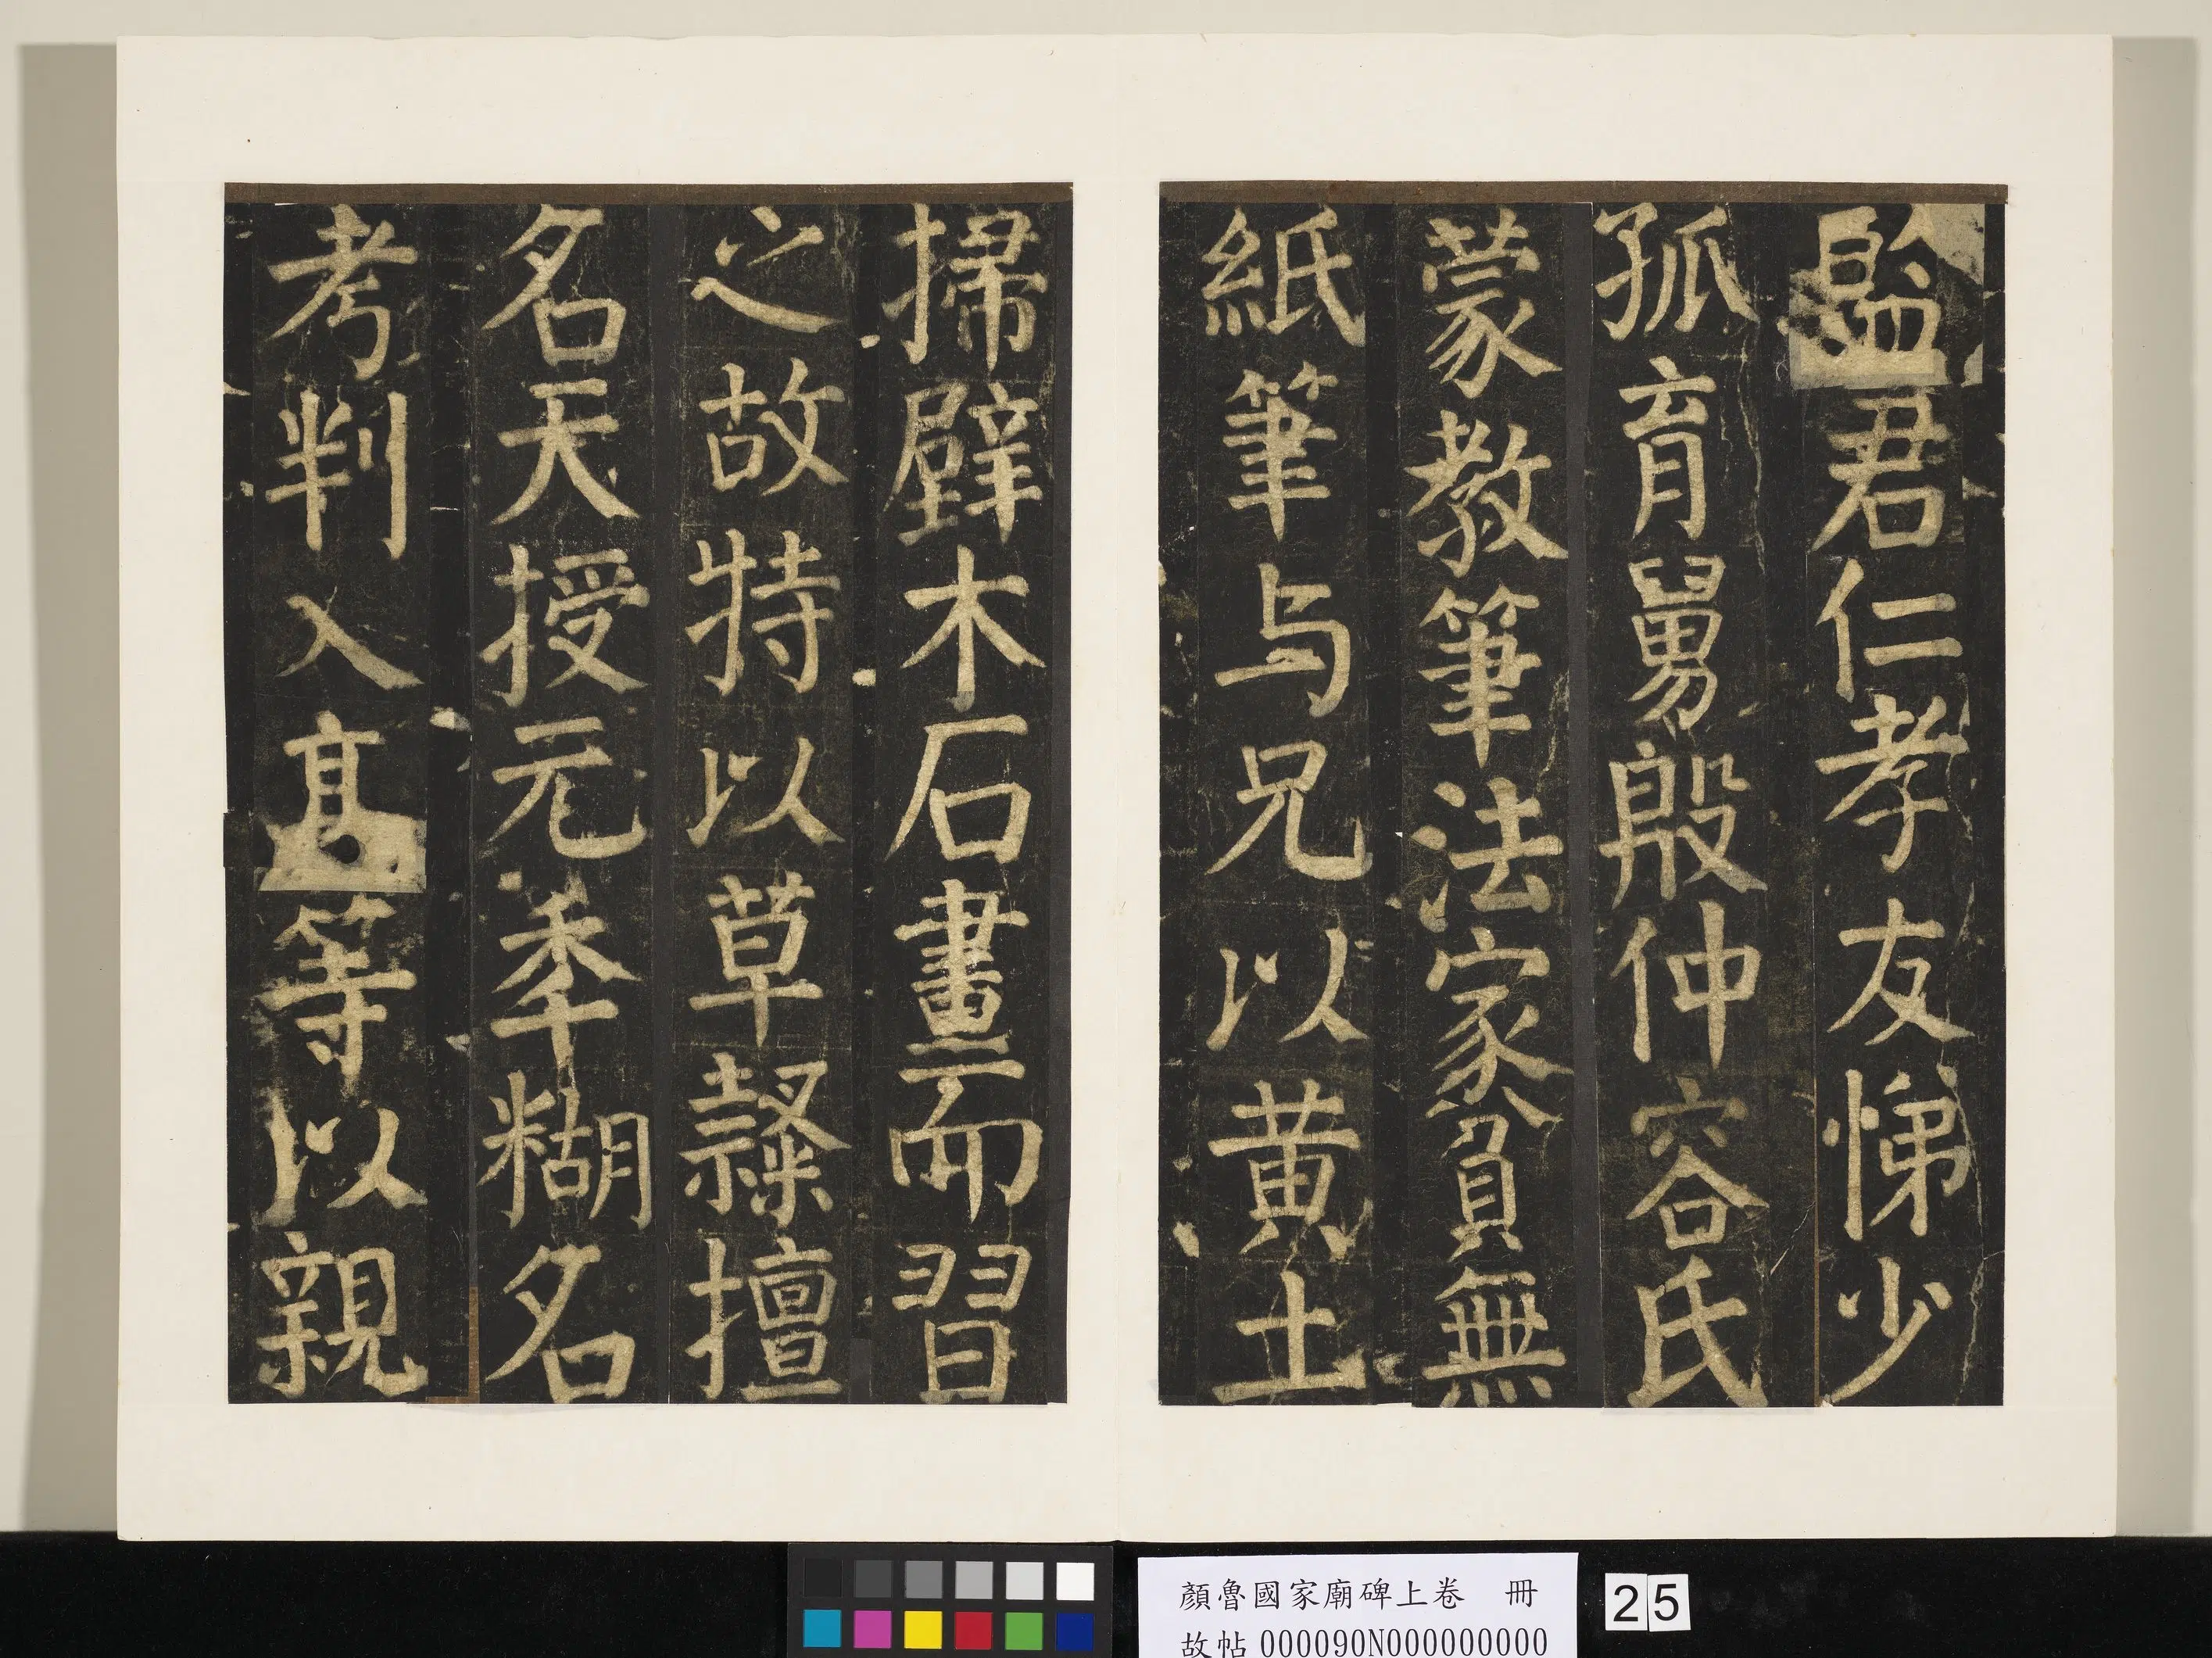 監君仁孝友悌少
孤育舅殷仲容氏
蒙教筆法家貧無
紙筆与兄以黃土
掃壁木石畫而習
之故特以草隸擅
名天授元秊糊名
考判入高等以親
顏魯國家廟碑上卷　冊
故帖 000090N000000000
25